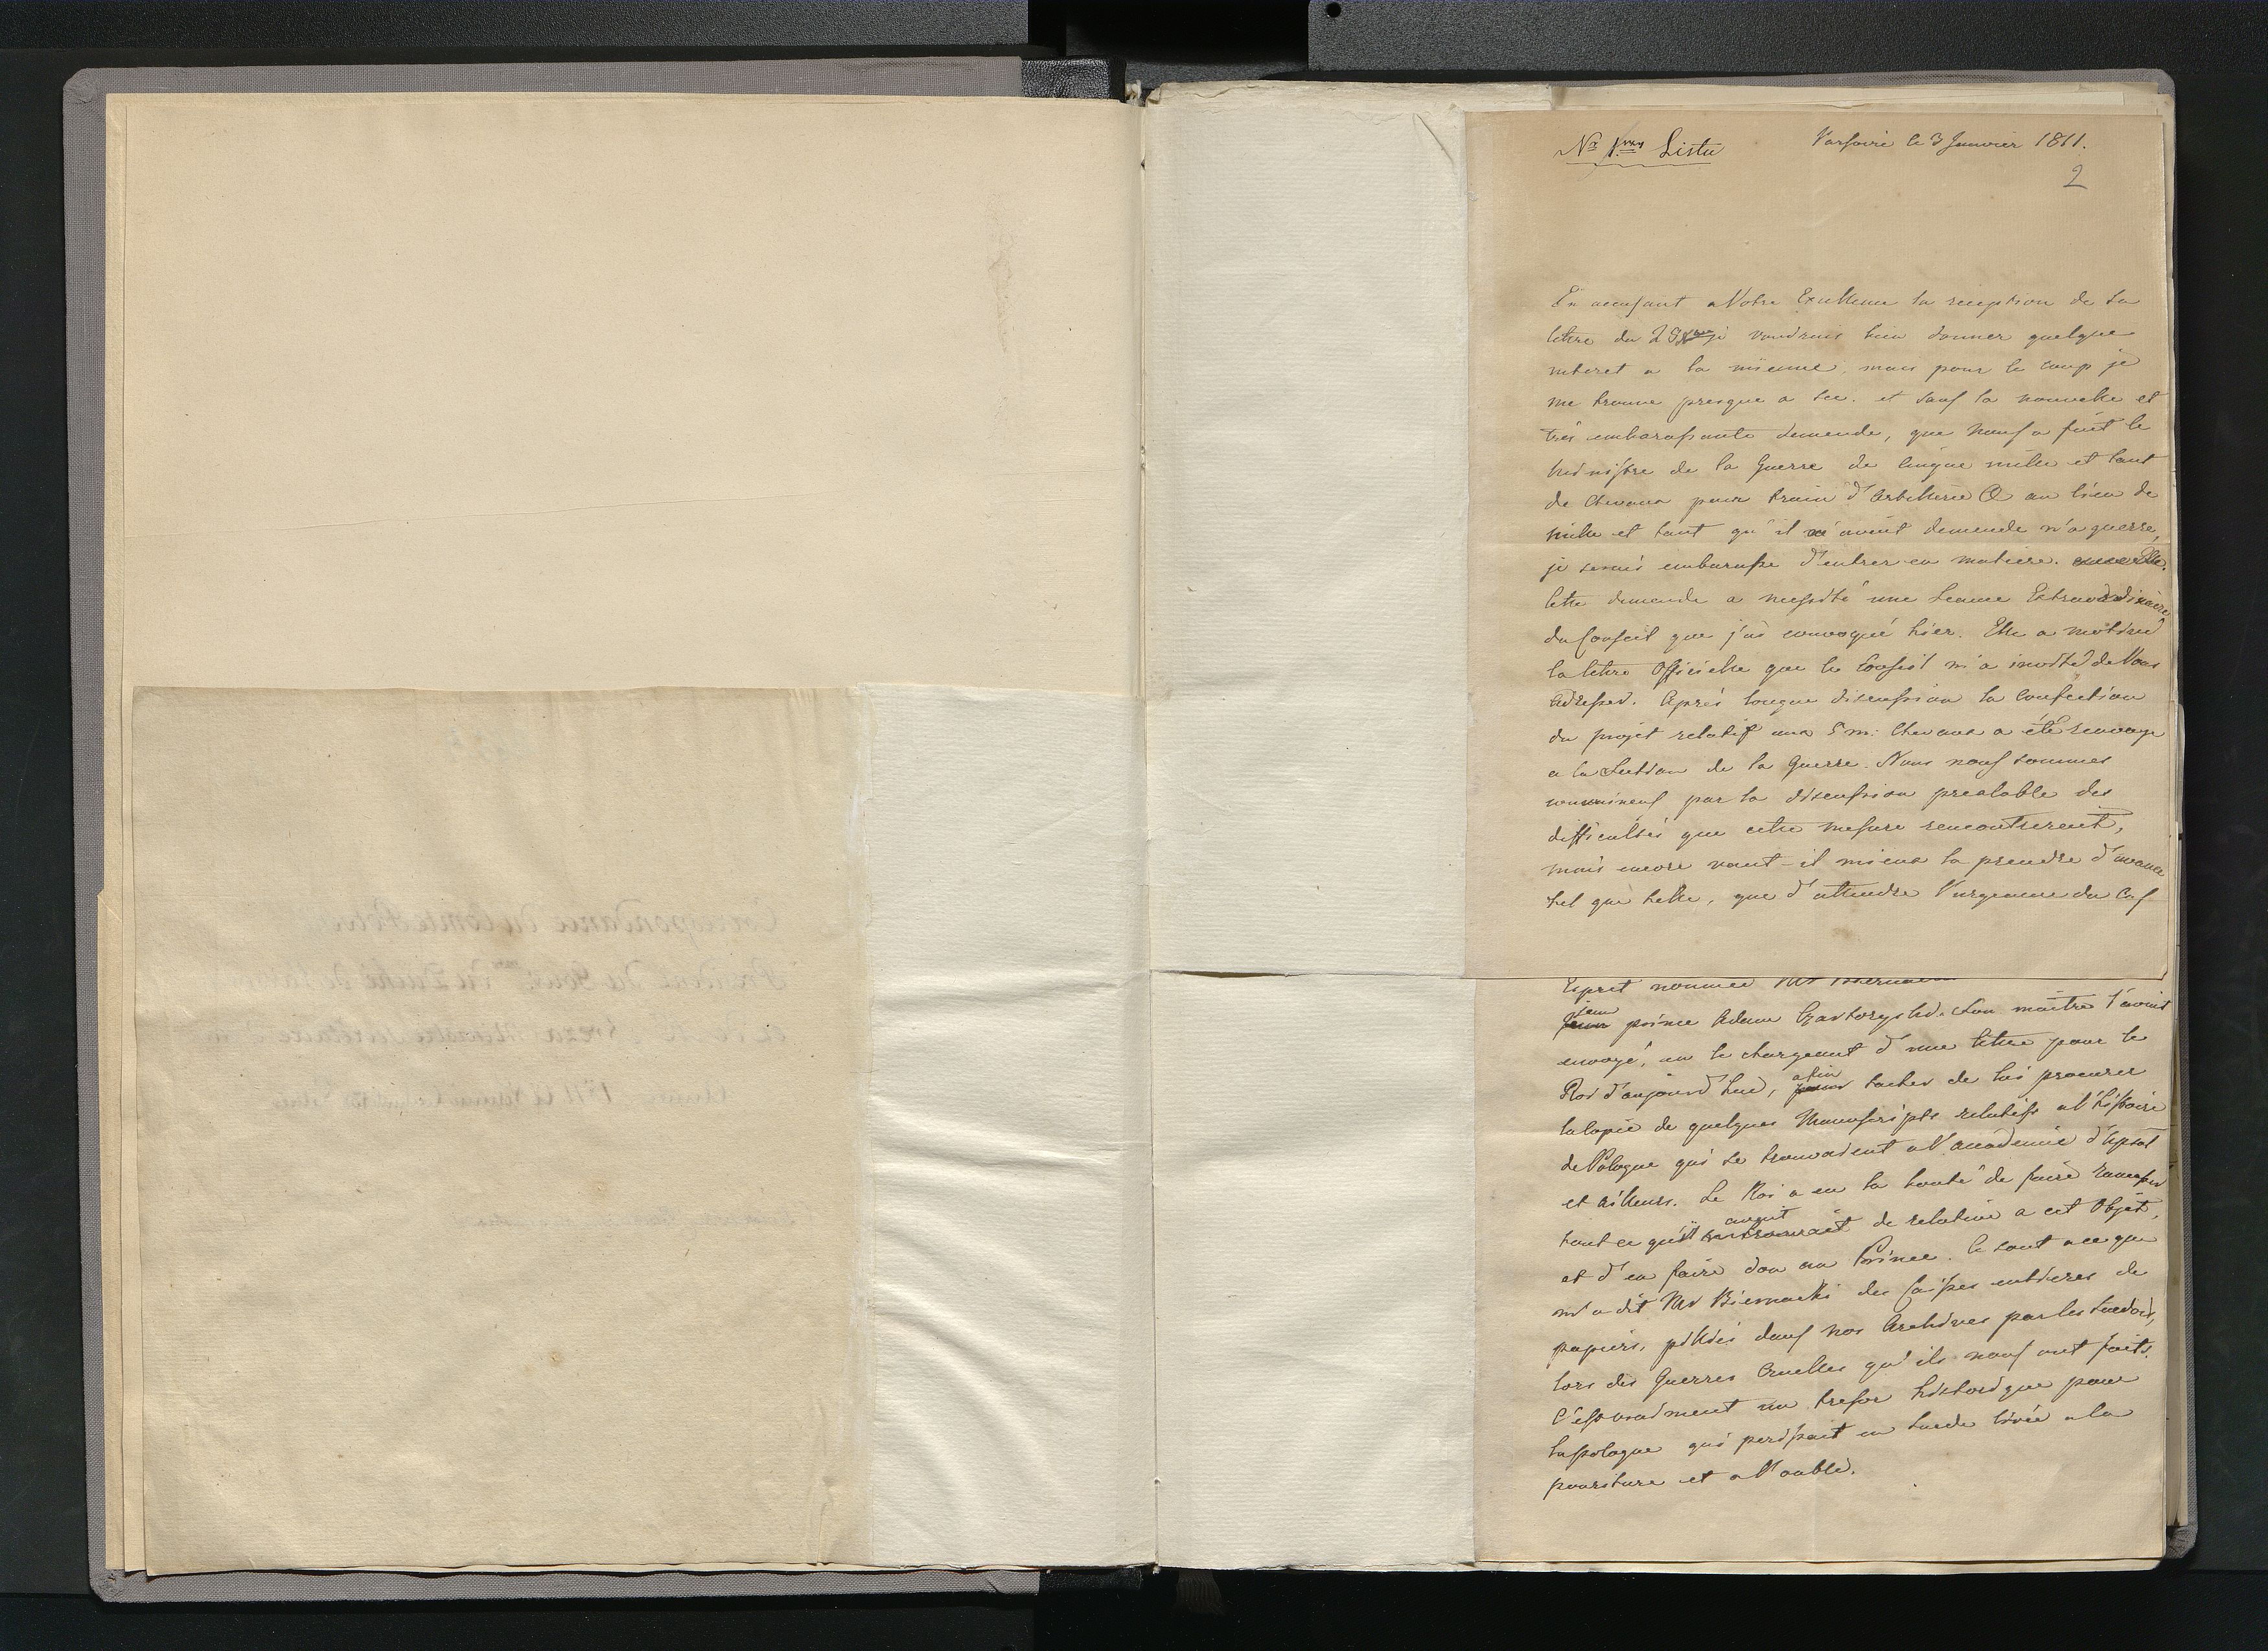 Nr 1wy Listu
Varsovie le 3 Janvier 1811.
2
En accusant a Votre Excellence la reception de Sa
lettre du 28 je voudrais bien donner quelque
interet a la mienne, mais pour le coup je
me trouve presque a sec. et sauf la nouvelle et
très embarassante demende, que nous a fait le
Ministre de la Guerre de cinque mille et tant
de chevaux pour train d'Artillerie & au lieu de
mille et tant qu'il avait demende n'a guerre,
je serais embarasse d'entrer en matiere.
Cette demende a necessité une Seance Extraordinaire
du Conseil que j'ai convoqué hier. Elle a motivé
la lettre Officielle que le Conseil m'a invité de Vous
adresser. Après longue discussion la Confection
du projet relatif aux 5 m: Chevaux a été renvoye
a la Section de la Guerre. Nous nous sommes
convaincus par la discussion prealable des
difficultés que cette mesure rencontrerait,
mais encore vaut-il mieux la prendre d'avance
tel que telle, que d'attendre l'urgence du Cas
Esprit nommé Mr Biernacki
jeun prince Adam Czartoryski. Son maître l'avait
envoyé, en le chargeant d'une lettre pour le
Roi d'aujourd'hui, afin tacher de lui procurer
la Copie de quelques Manuscripts relatifs a l'histoire
de Pologne qui se trouvaient a l'academie d'Upsal
et ailleurs. Le Roi a eu la bonté de faire ramasser
tout ce qu'il avait de relative a cet Objet,
et d'en faire don au Prince. Ce sont a ce que
m'a dit Mr Biernacki des Caisses entieres de
papiers, pillés dans nos Archives par les Suedois,
lors des Guerres Cruelles qu'ils nous ont faits.
C'est vraiment un tresor historique pour
la Pologne qui perissait en Suede livré a la
pouriture et a l'oubli.